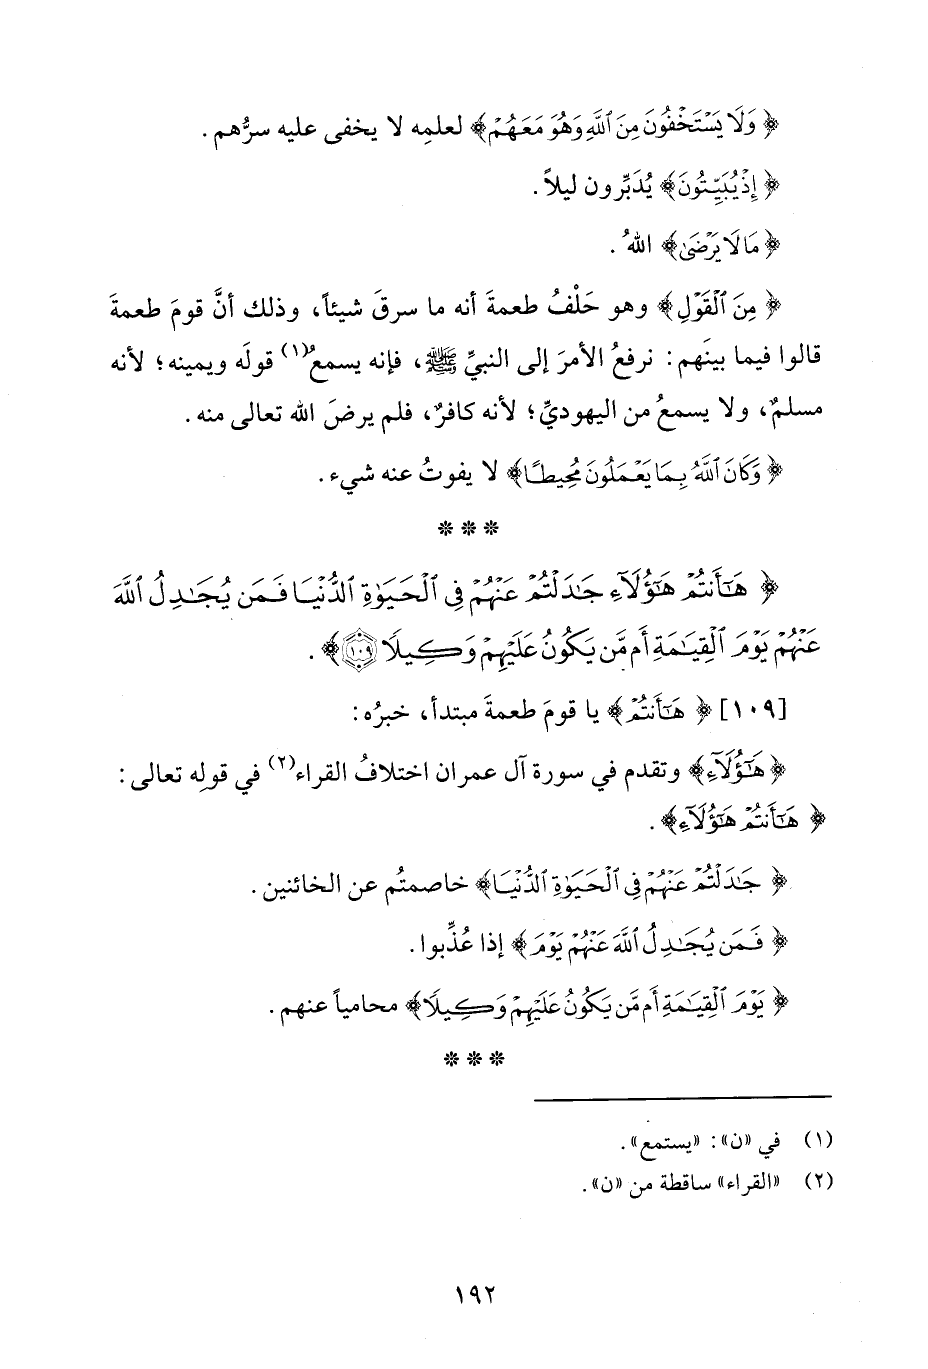 ﴿ وَلَا يَسْتَخْفُونَ مِنَ ٱللَّهِ وَهُوَ مَعَهُمْ ﴾ لعلمِه لا يخفى عليه سرُّهم .
﴿ إِذْ يُبَيِّتُونَ ﴾ يُدَبِّرون ليلاً .
﴿ مَا لَا يَرْضَىٰ ﴾ اللهُ .
﴿ مِنَ ٱلْقَوْلِ ﴾ وهو حَلْفُ طعمةَ أنه ما سرقَ شيئاً، وذلك أنَّ قومَ طعمةَ
قالوا فيما بينَهم: نرفعُ الأمرَ إلى النبيِّ ﷺ، فإنه يسمعُ(١) قولَه ويمينه؛ لأنه
مسلمٌ، ولا يسمعُ من اليهوديِّ؛ لأنه كافرٌ، فلم يرضَ الله تعالى منه.
﴿ وَكَانَ ٱللَّهُ بِمَا يَعْمَلُونَ مُحِيطًا ﴾ لا يفوتُ عنه شيء .
* * *
﴿ هَٰٓأَنتُمْ هَٰٓؤُلَآءِ جَٰدَلْتُمْ عَنْهُمْ فِى ٱلْحَيَوٰةِ ٱلدُّنْيَا فَمَن يُجَٰدِلُ ٱللَّهَ
عَنْهُمْ يَوْمَ ٱلْقِيَٰمَةِ أَم مَّن يَكُونُ عَلَيْهِمْ وَكِيلًا ١٠٩ ﴾ .
[١٠٩] ﴿ هَٰٓأَنتُمْ ﴾ يا قومَ طعمةَ مبتدأ، خبرُه:
﴿ هَٰٓؤُلَآءِ ﴾ وتقدم في سورة آل عمران اختلافُ القراء(٢) في قولِه تعالى:
﴿ هَٰٓأَنتُمْ هَٰٓؤُلَآءِ ﴾ .
﴿ جَٰدَلْتُمْ عَنْهُمْ فِى ٱلْحَيَوٰةِ ٱلدُّنْيَا ﴾ خاصمتُم عن الخائنين .
﴿ فَمَن يُجَٰدِلُ ٱللَّهَ عَنْهُمْ يَوْمَ ﴾ إذا عُذِّبوا .
﴿ يَوْمَ ٱلْقِيَٰمَةِ أَم مَّن يَكُونُ عَلَيْهِمْ وَكِيلًا ﴾ محامياً عنهم .
* * *
(١) في «ن»: «يستمع» .
(٢) «القراء» ساقطة من «ن» .
١٩٢